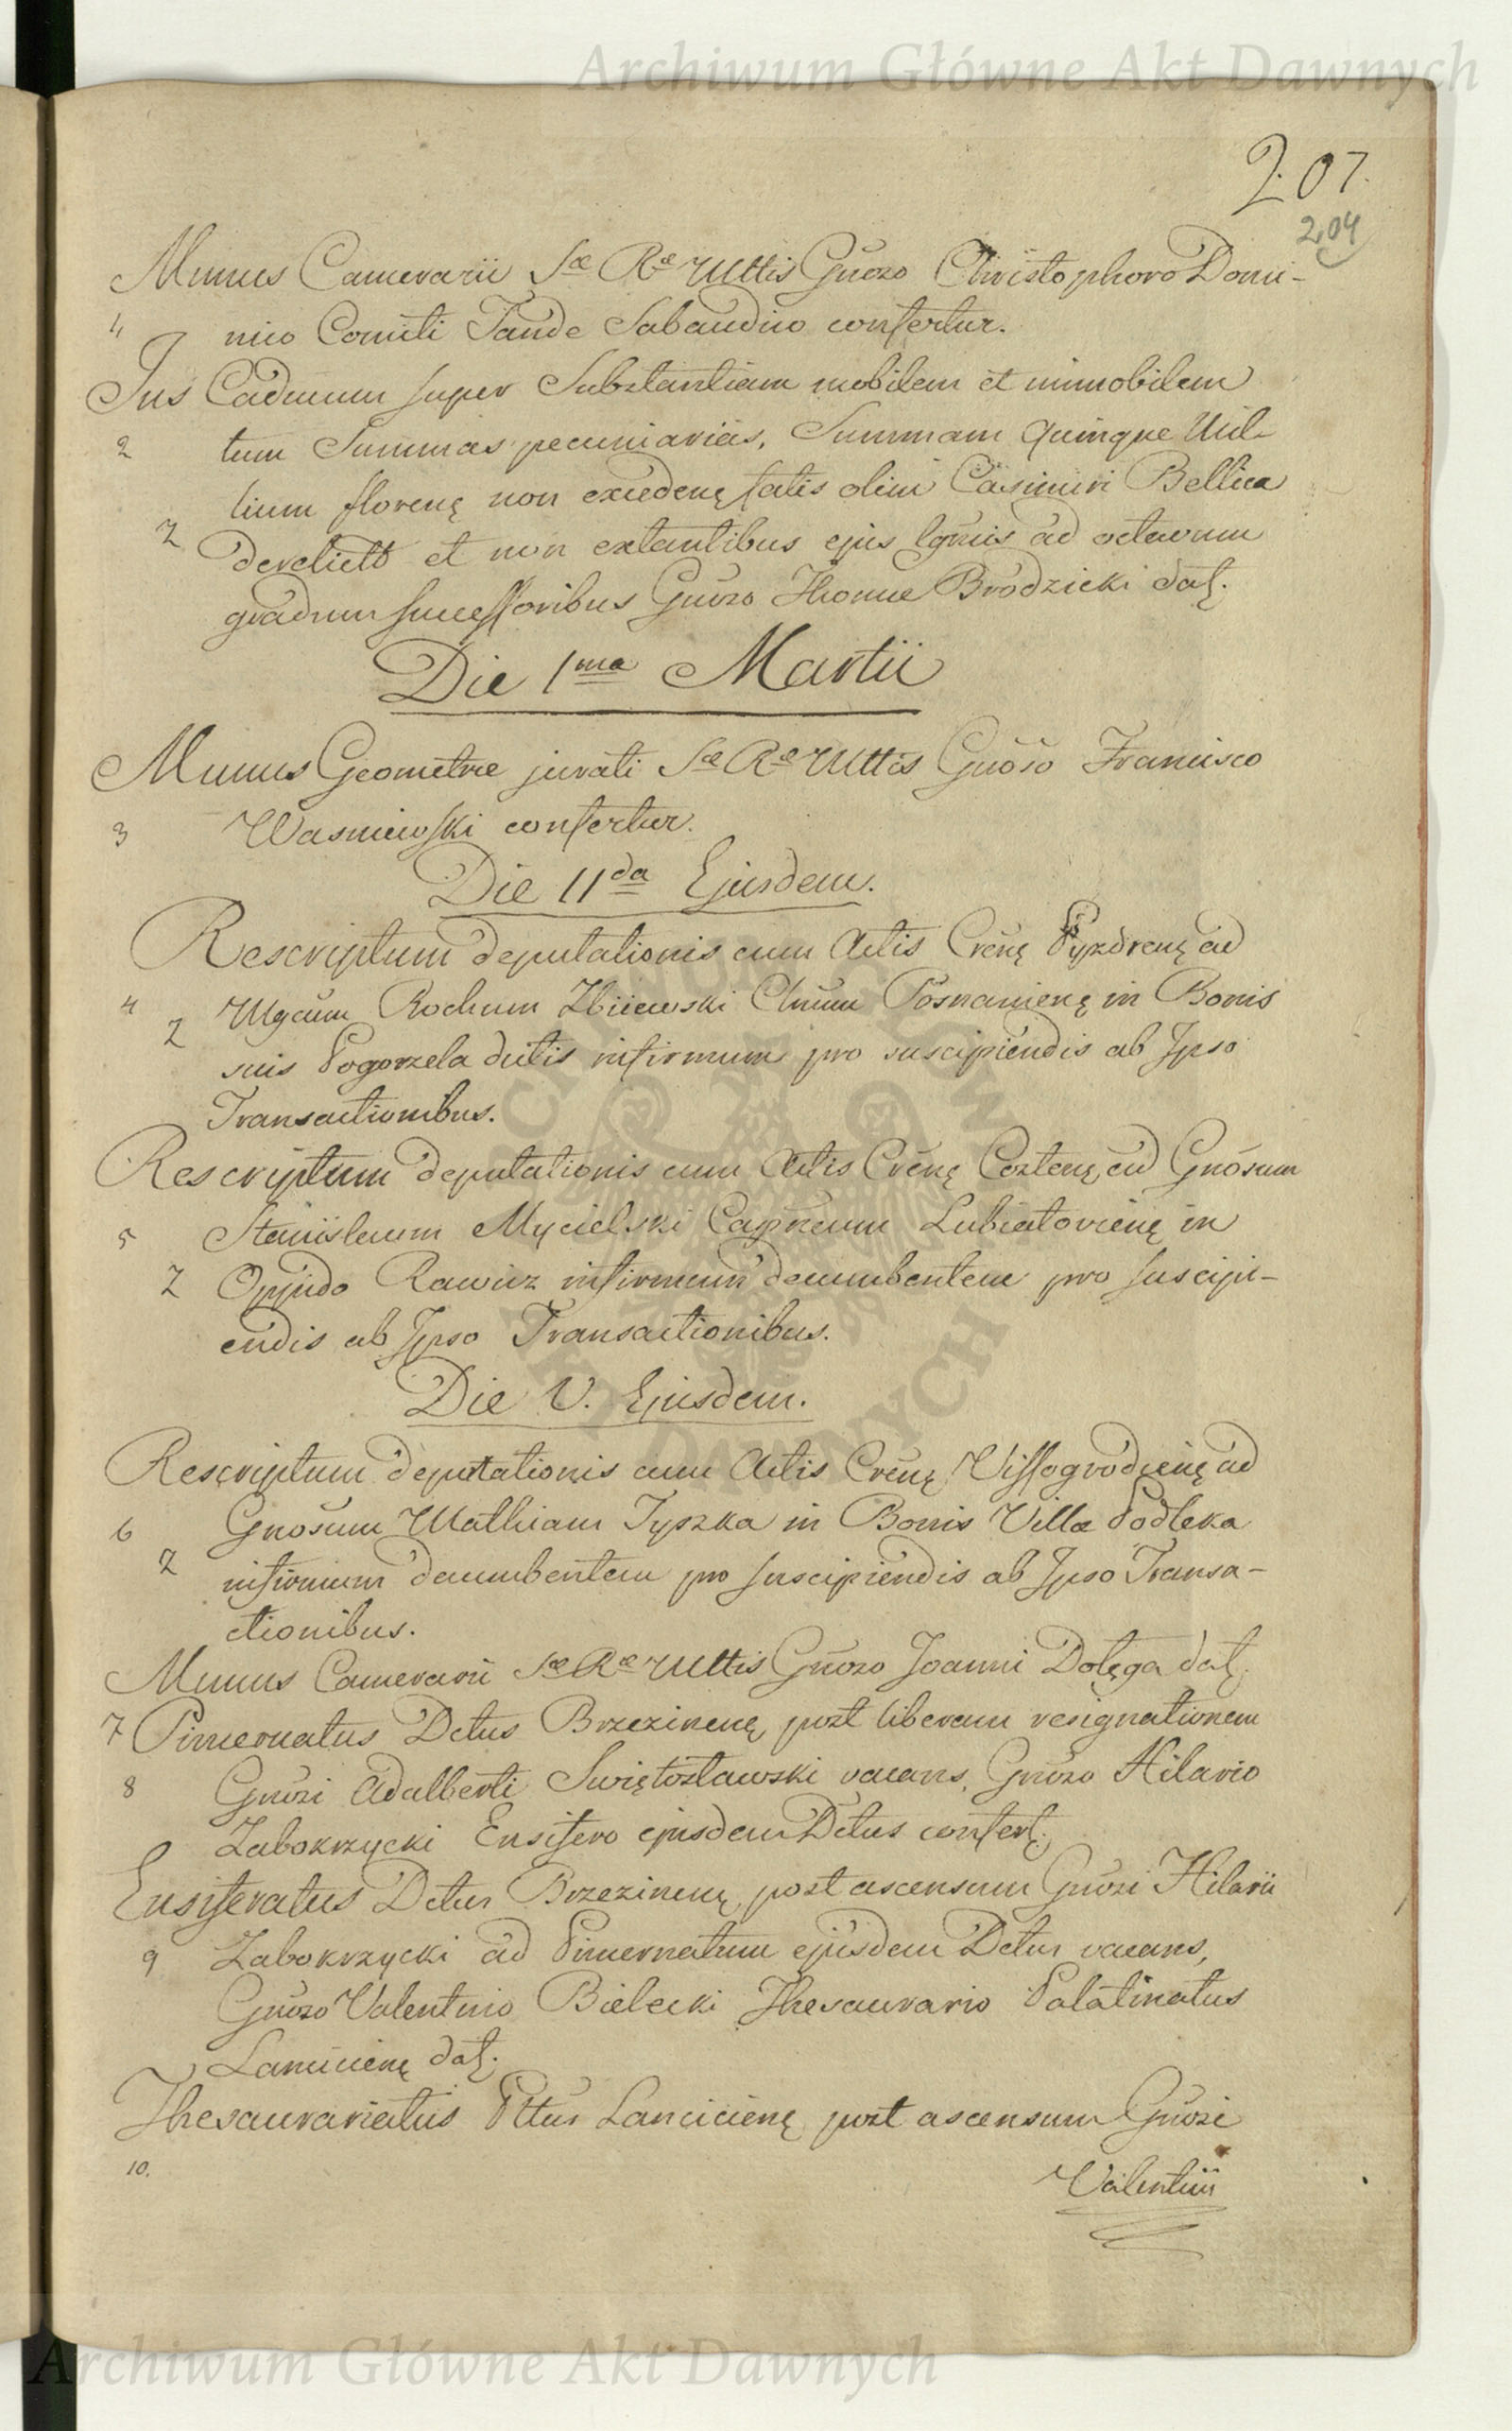 Archiwum Główne Akt Dawnych
207.
204
Munus Camerarii Sæ Ræ Mttis Gnõso Christophoro Domi-
1, nico Comiti Tande Sabaudico confertur.
Jus Caducum super Substantiam mobilem et immobilem
2 tum Summas pecuniarias, Summam Quinque Mil-
lium florenę non excedenę fatis olim Casimiri Bellica
Z derelictã et non extantibus ejus lgmis ad octavum
gradum successoribus Gnõso Thomæ Brodzicki datę.
Die 1ma Martii
Munus Geometræ jurati Sæ Ræ Mttis Gnõso Francisco
3 Wasniewski confertur.
Die 11da Ejusdem.
Rescriptum deputationis cum Actis Crenę Pyzdrenę ad
4 Mgcum Rochum Zbijewski Clnum Posnanienę in Bonis
Z
suis Pogorzela dictis infirmum pro suscipiendis ab Ipso
Transactionibus.
Rescriptum deputationis cum Actis Crenę Costenę ad Gnõsum
5 Stanislaum Mycielski Capneum Lubiatovienę in
Z Oppido Rawicz infirmum decumbentem pro suscipi-
endis ab Ipso Transactionibus.
Die V. Ejusdem.
Rescriptum deputationis cum Actis Crenę Vissogrodienę ad
6 Gnosum Mathiam Tyszka in Bonis Villa Podleka
Z infirmum decumbentem pro suscipiendis ab Ipso Transa-
ctionibus.
Munus Camerarii Sæ Ræ Mttis Gnõso Joanni Dołęga datę.
7 Pincernatus Dctus Brzezinenę post liberam resignationem
8 Gnõsi Adalberti Swiętosławski vacans, Gnõso Hilario
Zabokrzycki Ensifero ejusdem Dctus confertę.
Ensiferatus Dctus Brzezinenę post ascensum Gnõsi Hilarii
9 Zabokrzycki ad Pincernatum ejusdem Dctus vacans,
Gnõso Valentino Bielecki Thesaurario Palatinatus
Lancicienę datę.
Thesaurariatus Pttus Lancicienę post ascensum Gnõsi
10.
Valentini
Archiwum Główne Akt Dawnych